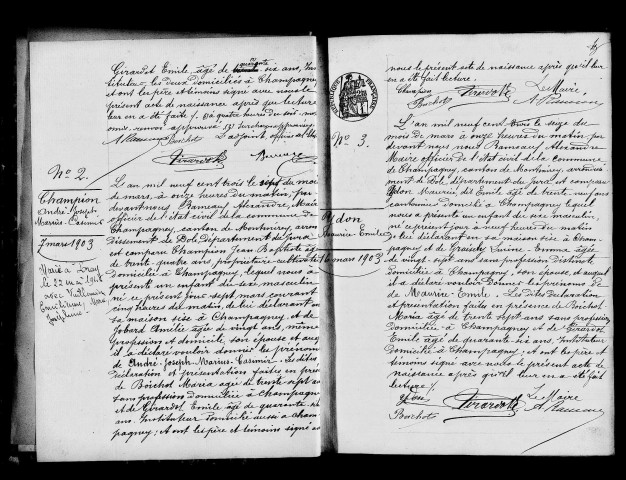 Girardot Emile âgé de quarante six ans, Ins
tituteur, les deux domiciliés à Champagney
et ont les père et témoins signé avec nous le
présent acte de naissance après que lecture
leur en a été faite
L'adjoint officier de l'état
Girardot
N° 2.
Champion
André-Joseph
Marius-Casimir
7 mars 1903
Marié à
le 22 mai 1948
avec
L'an mil neuf cent trois le sept du mois
de mars, à onze heures du matin, par
devant nous Rameaux Alexandre, Maire
officier de l'état civil de la commune de
Champagney, canton de Montmirey, arron
dissement de Dole, Département du Jura
est comparu Champion Jean Baptiste âgé
de trente quatre ans, propriétaire cultivateur
domicilié à Champagney, lequel nous a
présenté un enfant du sexe masculin
né ce présent jour sept mars courant
cinq heures du matin, de lui déclarant en
sa maison sise à Champagney, et de
Jobard Amélie âgée de vingt ans, même
profession et domicile, son épouse, et auquel
il a déclaré vouloir donner les prénoms
de André-Joseph-Marius-Casimir. Les dites
déclaration et présentation faites en présence
de Boichot Maria âgée de trente sept ans
sans profession domiciliée à Champagney
et de Girardot Emile âgé de quarante six
ans, Instituteur domicilié aussi à Cham
pagney; et ont les père et témoins signé avec
nous le présent acte de naissance après que lecture leur
en a été fait lecture.
Champion
Girardot
Le Maire
Boichot
A. Rameaux
N° 3.
Ydon
Maurice Emile
16 mars 1903
L'an mil neuf cent trois le seize du
mois de mars à onze heures du matin par
devant nous Rameaux Alexandre
Maire officier de l'état civil de la commune
de Champagney, canton de Montmirey, arrondisse
ment de Dole département du Jura, est comparu
Ydon Maurice, Emile âgé de trente neuf ans
domicilié à Champagney lequel
nous a présenté un enfant du sexe masculin,
né ce présent jour à neuf heures du matin
de lui déclarant en sa maison sise à Cham
pagney et de Emma âgée
de vingt-sept ans sans profession
domiciliée à Champagney, son épouse, et auquel
il a déclaré vouloir donner les prénoms
de Maurice-Emile. Les dites déclaration
et présentation faites en présence de Boichot
Maria âgée de trente sept ans sans profession
domiciliée à Champagney et de Girardot
Emile âgé de quarante-six ans, Instituteur
domicilié à Champagney; et ont les père et
témoins signé avec nous le présent acte de
naissance après qu'il leur en a été fait
lecture
Ydon
Girardot
Le Maire
Boichot
A. Rameaux